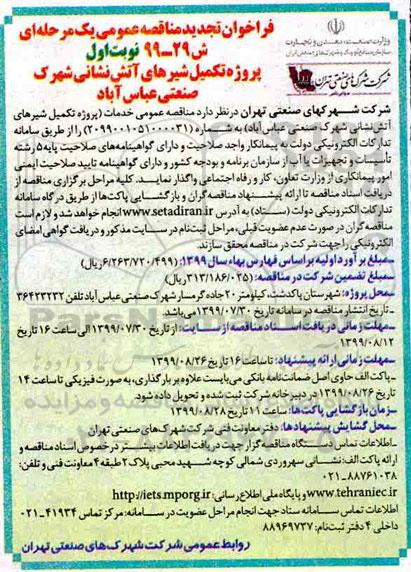 وزارت صنعت، معدن و تجارت
شرکت شهرک‌های صنعتی تهران
فراخوان تجدید مناقصه عمومی یک مرحله‌ای
ش ۲۹-۹۹ نوبت اول
پروژه تکمیل شیرهای آتش‌نشانی شهرک
صنعتی عباس‌آباد
شرکت شهرکهای صنعتی تهران در نظر دارد مناقصه عمومی خدمات (پروژه تکمیل شیرهای
آتش‌نشانی شهرک صنعتی عباس‌آباد) به شماره (۲۰۹۹۰۰۱۰۵۱۰۰۰۰۳۱) را از طریق سامانه
تدارکات الکترونیکی دولت به پیمانکار واجد صلاحیت و دارای گواهینامه‌های صلاحیت پایه ۵ رشته
تأسیسات و تجهیزات یا آب از سازمان برنامه و بودجه کشور و دارای گواهینامه تایید صلاحیت ایمنی
امور پیمانکاری از وزارت تعاون، کار و رفاه اجتماعی واگذار نمایند. کلیه مراحل برگزاری مناقصه از
دریافت اسناد مناقصه تا ارائه پیشنهاد مناقصه‌گران و بازگشایی پاکت‌ها از طریق درگاه سامانه
تدارکات الکترونیکی دولت (ستاد) به آدرس www.setadiran.ir انجام خواهد شد و لازم است
مناقصه‌گران در صورت عدم عضویت قبلی، مراحل ثبت‌نام در سایت مذکور و دریافت گواهی امضای
الکترونیکی را جهت شرکت در مناقصه محقق سازند.
-مبلغ برآورد اولیه بر اساس فهارس بهاء سال ۱۳۹۹: (۶/۲۶۳/۷۲۰/۴۹۹ ریال)
-مبلغ تضمین شرکت در مناقصه: (۳۱۳/۱۸۶/۰۲۵ ریال)
-محل پروژه: شهرستان پاکدشت، کیلومتر ۲۰ جاده گرمسار، شهرک صنعتی عباس‌آباد تلفن ۳۶۴۲۳۲۳۲
- تاریخ انتشار مناقصه در سامانه تاریخ ۱۳۹۹/۰۷/۳۰ می‌باشد.
-مهلت زمانی دریافت اسناد مناقصه از سایت: از تاریخ ۱۳۹۹/۰۷/۳۰ الی ساعت ۱۶ تاریخ
۱۳۹۹/۰۸/۱۲
-مهلت زمانی ارائه پیشنهاد: تا ساعت ۱۶ تاریخ ۱۳۹۹/۰۸/۲۶
- پاکت الف حاوی اصل ضمانت‌نامه بانکی می‌بایست علاوه بر بارگذاری، به صورت فیزیکی تا ساعت ۱۴
تاریخ ۱۳۹۹/۰۸/۲۶ در دبیرخانه شرکت ثبت شده و تحویل داده شود.
-زمان بازگشایی پاکت‌ها: ساعت ۱۱ تاریخ ۱۳۹۹/۰۸/۲۸
-محل گشایش پیشنهادها: دفتر معاونت فنی شرکت شهرک‌های صنعتی تهران
-اطلاعات تماس دستگاه مناقصه گزار جهت دریافت اطلاعات بیشتر در خصوص اسناد مناقصه و
ارائه پاکت الف: نشانی سهروردی شمالی کوچه شهید محبی پلاک ۲ طبقه ۴ معاونت فنی و تلفن:
۰۲۱-۸۸۷۶۱۰۳۸
www.tehraniec.ir و پایگاه ملی اطلاع‌رسانی: http://iets.mporg.ir
اطلاعات تماس سامانه ستاد جهت انجام مراحل عضویت در سامانه: مرکز تماس ۴۱۹۳۴-۰۲۱
داخلی ۴ دفتر ثبت‌نام: ۸۸۹۶۹۷۳۷
روابط عمومی شرکت شهرک‌های صنعتی تهران